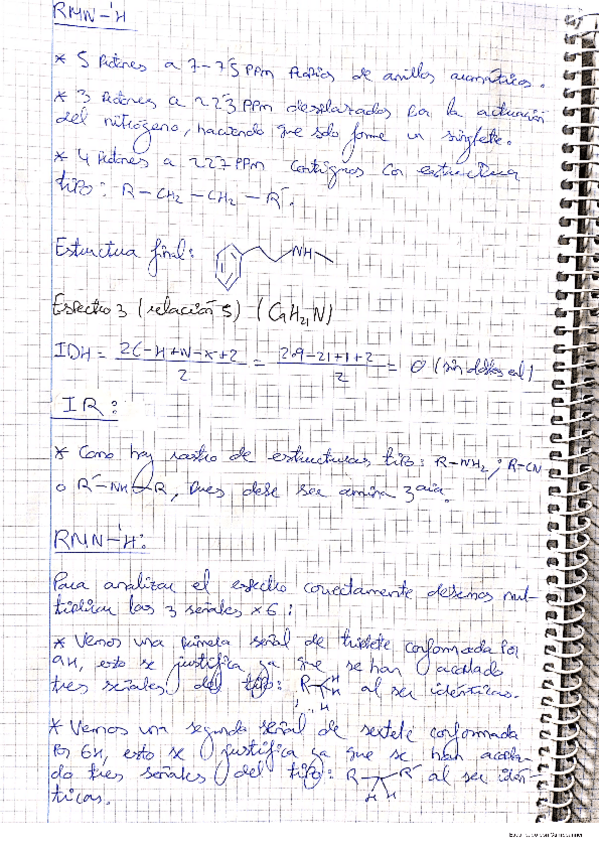 RMN-¹H
* 5 Protones a 7-7'5 PPm Propios de anillos aromáticos.
* 3 Protones a 2'23 PPm desplazados por la actuación
del nitrógeno, haciendo que solo forme un singlete.
* 4 Protones a 2'27 PPm contiguos con estructura
tipo: R-CH₂-CH₂-R'.
Estructura final: NH
Espectro 3 (relación 5) (C₉H₂₁N)
IDH = 2C-H+N-X+2 / 2 = 2·9-21+1+2 / 2 = 0 (sin dobles enl)
IR:
* Como hay rastro de estructuras tipo: R-NH₂; R-CN
o R'-NH-R, Pues debe ser amina 3aria.
RMN-¹H:
Para analizar el espectro correctamente debemos mul-
tiplicar las 3 señales x6:
* Vemos una primera señal de triplete conformada por
9H, esto se justifica ya que se han acoplado
tres señales del tipo: R H H H al ser idénticas.
* Vemos una segunda señal de sextete conformada
por 6H, esto se justifica ya que se han acopla-
do tres señales del tipo: R R' H H al ser idén-
ticas.